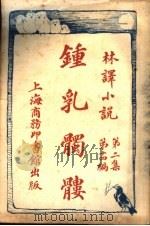 林譯小說
第二集
第四編
鍾乳髑髏
上海商務印書館出版